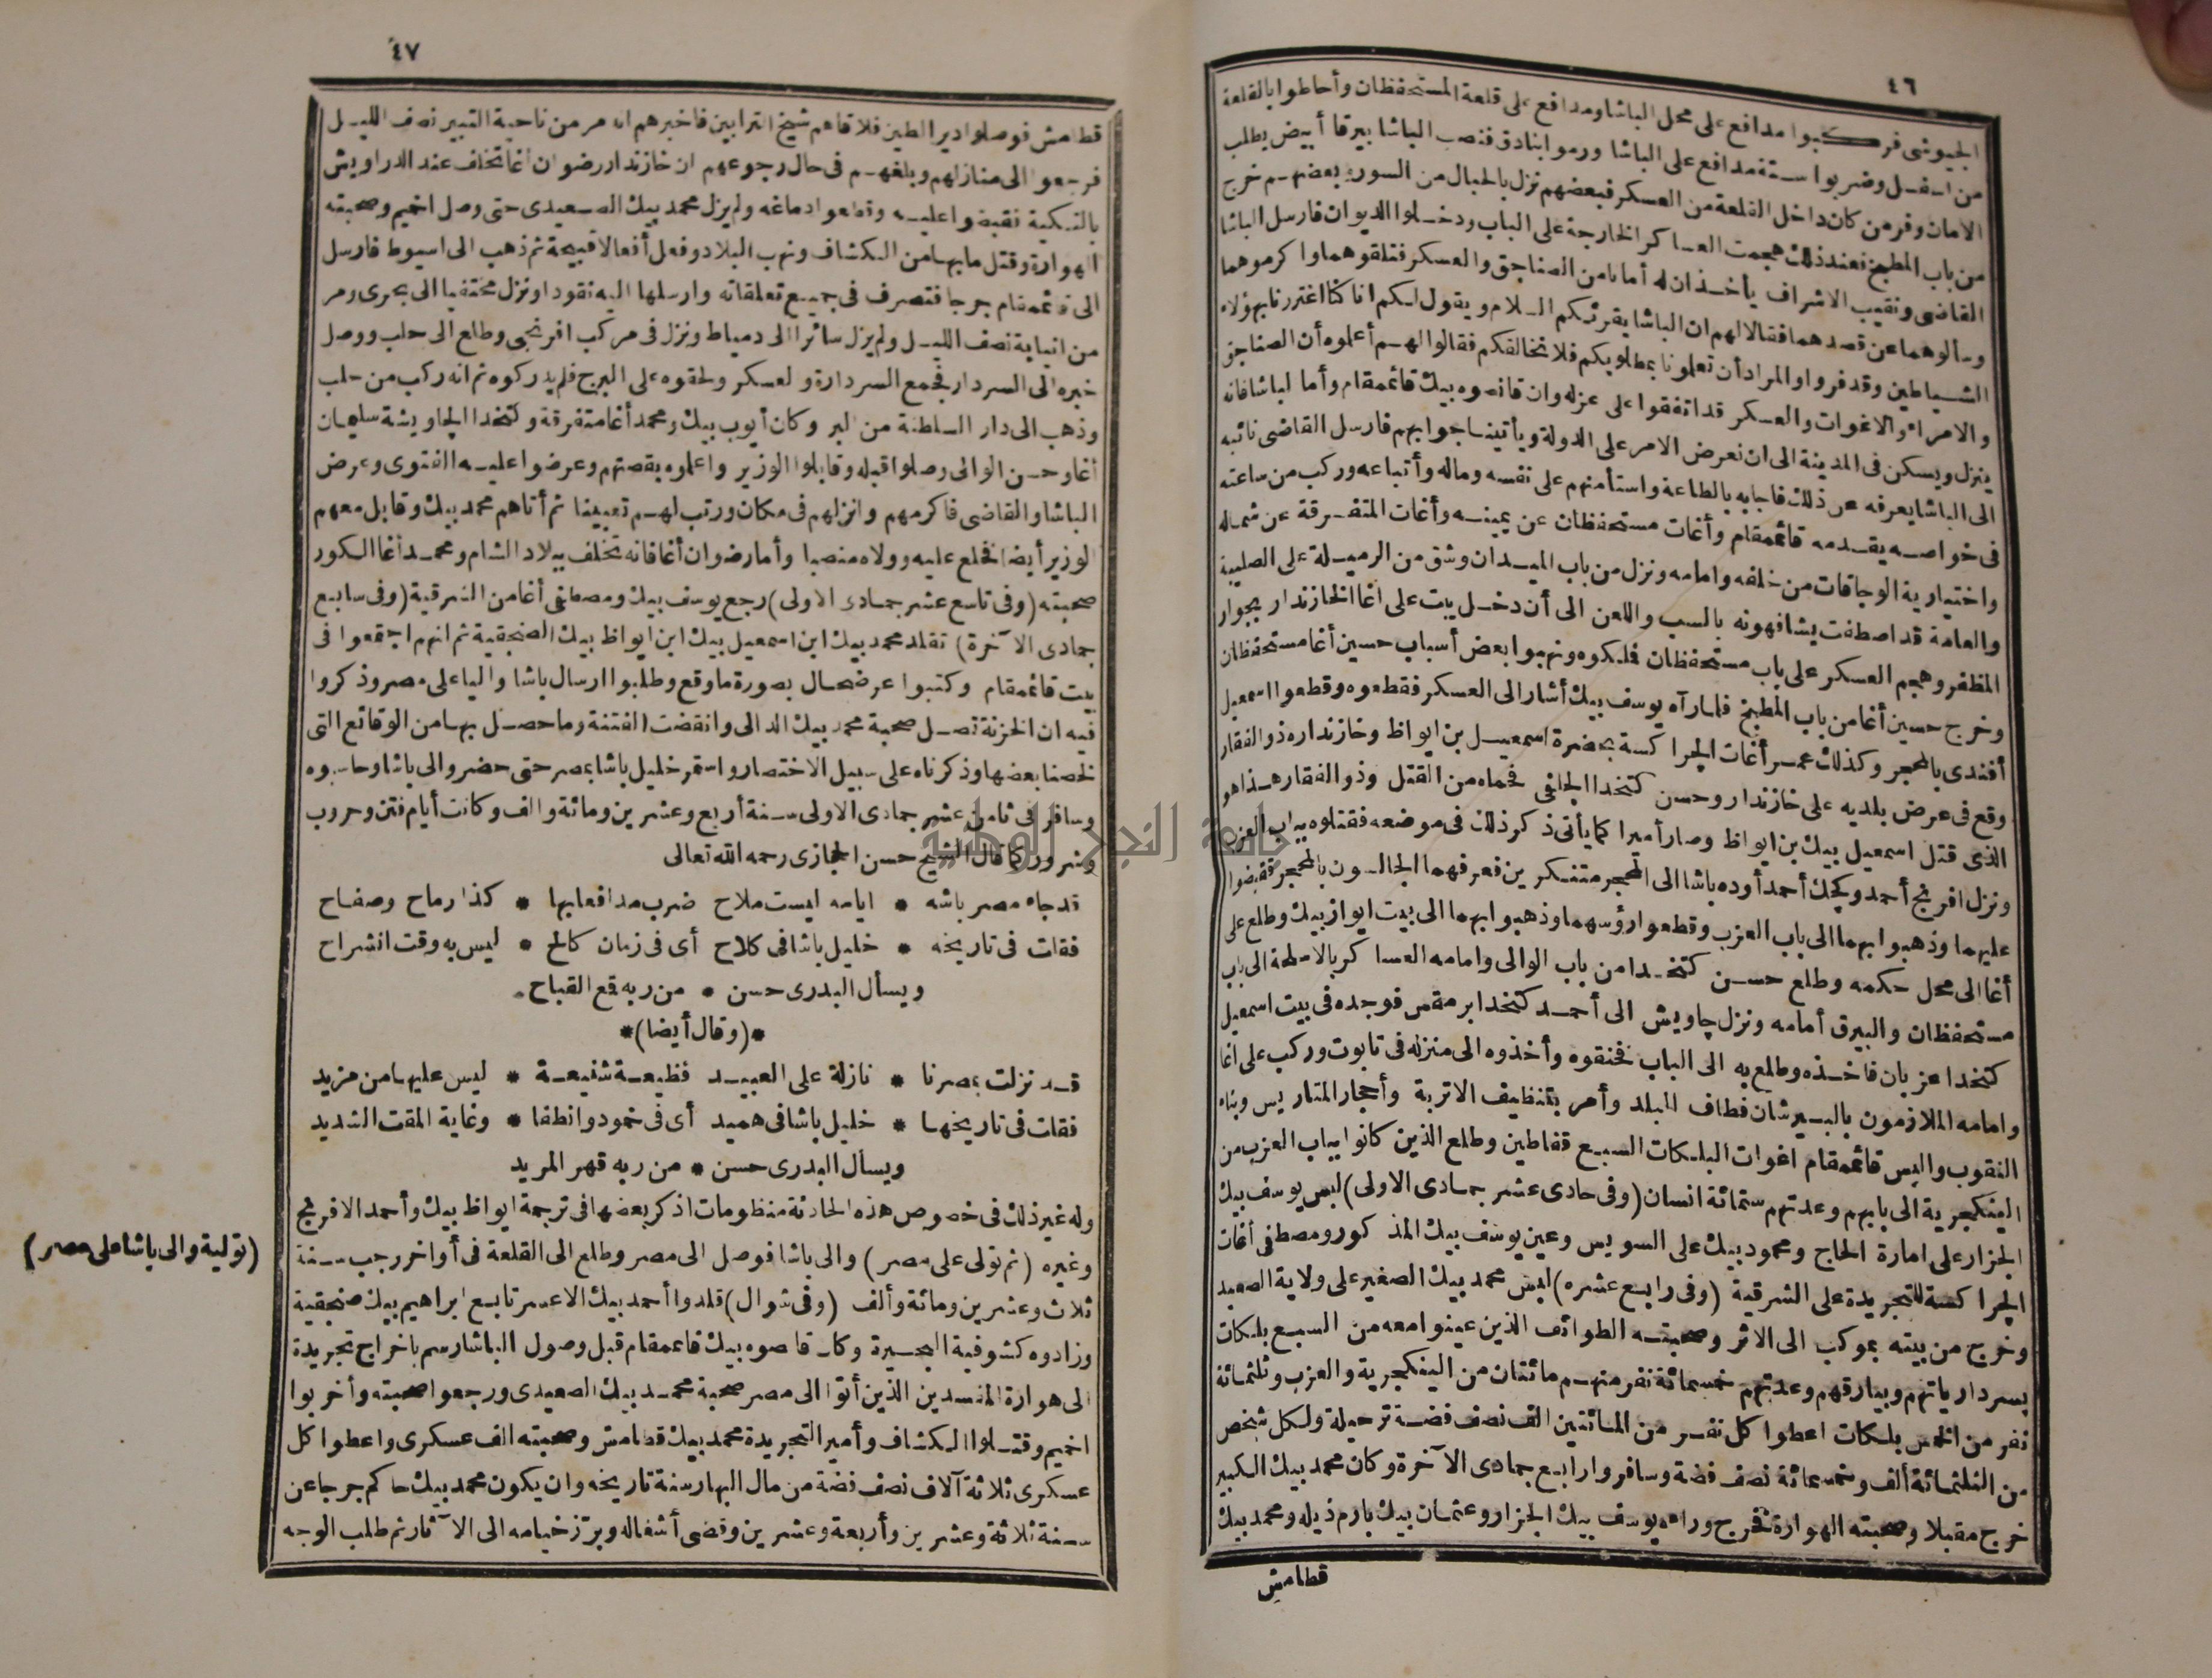 ٤٦
الجيوشى فركبوا مدافع على محل الباشا ومدافع على قلعة المستحفظان وأحاطوا بالقلعة
من اسفل وضربوا ستة مدافع على الباشا ورموا بنادق فنصب الباشا بيرقا أبيض يطلب
الامان وفر من كان داخل القلعة من العسكر فبعضهم نزل بالحبال من السور وبعضهم خرج
من باب المطبخ فعند ذلك هجمت العساكر الخارجة على الباب ودخلوا الديوان فارسل الباشا
القاضى ونقيب الاشراف يأخذان له أمانا من الصناجق والعسكر فتلقوهما واكرموهما
وسالوهما عن قصدهما فقالا لهم ان الباشا يقرئكم السلام ويقول لكم انا كنا اغتررنا بهؤلاء
الشياطين وقد فروا والمراد أن تعلمونا بمطلوبكم فلا نخالفكم فقالوا لهم أعلموه أن الصناجق
والامراء والاغوات والعسكر قد اتفقوا على عزله وان قانصوه بيك قائممقام وأما الباشا فانه
ينزل ويسكن فى المدينة الى ان نعرض الامر على الدولة ويأتينا جوابهم فارسل القاضى نائبه
الى الباشا يعرفه عن ذلك فاجابه بالطاعة واستأمنهم على نفسه وماله وأتباعه وركب من ساعته
فى خواصه يقدمه قائممقام وأغات مستحفظان عن يمينه وأغات المتفرقة عن شماله
واختيارية الوجاقات من خلفه وامامه ونزل من باب الميدان وشق من الرميلة على الصليبة
والعامة قد اصطفت يشافهونه بالسب واللعن الى أن دخل بيت على اغا الخازندار بجوار
المظفر وهجم العسكر على باب مستحفظان فملكوه ونهبوا بعض أسباب حسين أغا مستحفظان
وخرج حسين أغا من باب المطبخ فلما رآه يوسف بيك أشار الى العسكر فقطعوه وقطعوا اسمعيل
أفندى بالمحجر وكذلك عمر أغات الجراكسة بحضرة اسمعيل بن ايواظ وخازنداره ذو الفقار
وقع فى عرض بلديه على خازندار وحسن كتخدا الجلفى فحماه من القتل وذو الفقار هذا هو
الذى قتل اسمعيل بيك بن ايواظ وصار أميرا كما يأتى ذكر ذلك فى موضعه فقتلوه بباب العزب
ونزل افرنج أحمد وكچك أحمد أوده باشا الى المحجر متنكرين فعرفهما الجالسون بالمحجر فقبضوا
عليهما وذهبوا بهما الى باب العزب وقطعوا رؤسهما وذهبوا بهما الى بيت ايواز بيك وطلع على
أغا الى محل حكمه وطلع حسن كتخدا من باب الوالى وامامه العساكر بالاسلحة الى باب
مستحفظان والبيرق أمامه ونزل چاويش الى أحمد كتخدا برمقس فوجده فى بيت اسمعيل
كتخدا عزبان فاخذه وطلع به الى الباب فخنقوه وأخذوه الى منزله فى تابوت وركب على اغا
وامامه الملازمون بالبيرشان فطاف البلد وأمر بتنظيف الاتربة وأحجار المتاريس وبناء
النقوب والبس قائممقام اغوات البلكات السبع قفاطين وطلع الذين كانوا بباب العزب من
الينكجرية الى بابهم وعدتهم ستمائة انسان (وفى حادى عشر جمادى الاولى) لبس يوسف بيك
الجزار على امارة الحاج ومحمود بيك على السويس وعين يوسف بيك المذكور ومصطفى أغات
الچراكسة للتجريدة على الشرقية (وفى رابع عشره) لبس محمد بيك الصغير على ولاية الصعيد
وخرج من بيته بموكب الى الاثر وصحبته الطوائف الذين عينوا معه من السبع بلكات
بسردارياتهم وبيارقهم وعدتهم خمسمائة نفر منهم مائتان من الينكجرية والعزب وثلثمائة
نفر من الخمس بلكات اعطوا كل نفر من المائتين الف نصف فضة ترحيلة ولكل شخص
من الثلثمائة ألف وخمسمائة نصف فضة وسافروا رابع جمادى الآخرة وكان محمد بيك الكبير
خرج مقبلا وصحبته الهوارة فخرج وراءه يوسف بيك الجزار وعثمان بيك بارم ذيله ومحمد بيك
قطامش
٤٧
قطامش فوصلوا دير الطين فلاقاهم شيخ الترابين فاخبرهم انه مر من ناحية التبين نصف الليل
فرجعوا الى منازلهم وبلغهم فى حال رجوعهم ان خازندار رضوان أغا تخلف عند الدراويش
بالتكية فقبضوا عليه وقطعوا دماغه ولم يزل محمد بيك الصعيدى حتى وصل اخميم وصحبته
الهوارة وقتل ما بها من الكشاف ونهب البلاد وفعل أفعالا قبيحة ثم ذهب الى اسيوط فارسل
الى قائممقام جرجا فتصرف فى جميع تعلقاته وارسلها اليه نقودا ونزل مختفيا الى بحرى ومر
من انبابة نصف الليل ولم يزل سائرا الى دمياط ونزل فى مركب افرنجى وطلع الى حلب ووصل
خبره الى السردار فجمع السردارة والعسكر ولحقوه على البرج فلم يدركوه ثم انه ركب من حلب
وذهب الى دار السلطنة من البر وكان أيوب بيك ومحمد أغا متفرقة وكتخدا الچاويشة سليمان
أغا وحسن الوالى وصلوا قبله وقابلوا الوزير واعلموه بقصتهم وعرضوا عليه الفتوى وعرض
الباشا والقاضى فاكرمهم وانزلهم فى مكان ورتب لهم تعيينا ثم أتاهم محمد بيك وقابل معهم
الوزير أيضا فخلع عليه وولاه منصبا وأما رضوان أغا فانه تخلف ببلاد الشام ومحمد أغا الكور
صحبته (وفى تاسع عشر جمادى الاولى) رجع يوسف بيك ومصطفى أغا من الشرقية (وفى سابع
جمادى الآخرة) تقلد محمد بيك ابن اسمعيل بيك ابن ايواظ بيك الصنجقية ثم انهم اجتمعوا فى
بيت قائممقام وكتبوا عرضحال بصورة ما وقع وطلبوا ارسال باشا واليا على مصر وذكروا
فيه ان الخزنة تصل صحبة محمد بيك الدالى وانقضت الفتنة وما حصل بها من الوقائع التى
لخصنا بعضها وذكرناه على سبيل الاختصار واستمر خليل باشا بمصر حتى حضر والى باشا وحاسبوه
وسافر فى ثامن عشر جمادى الاولى سنة أربع وعشرين ومائة والف وكانت أيام فتن وحروب
وشرور كما قال الشيخ حسن الحجازى رحمه الله تعالى
قد جاء مصر باشه * ايامه ليست ملاح ضرب مدافعا بها * كذا رماح وصفاح
فقلت فى تاريخه * خليل باشا فى كلاح أى فى زمان كالح * ليس به وقت انشراح
ويسأل البدرى حسن * من ربه قمع القباح
*(وقال أيضا)*
قد نزلت بمصرنا * نازلة على العبيد فظيعة شنيعة * ليس عليها من مزيد
فقلت فى تاريخها * خليل باشا فى هميد أى فى خمود وانطفا * وغاية المقت الشديد
ويسأل البدرى حسن * من ربه قهر المريد
وله غير ذلك فى خصوص هذه الحادثة منظومات اذكر بعضها فى ترجمة ايواظ بيك وأحمد الافرنج
وغيره (ثم تولى على مصر) والى باشا فوصل الى مصر وطلع الى القلعة فى أواخر رجب سنة
(تولية والى باشا على مصر)
ثلاث وعشرين ومائة وألف (وفى شوال) قلدوا أحمد بيك الاعسر تابع ابراهيم بيك صنجقية
وزادوه كشوفية البحيرة وكان قانصوه بيك قائممقام قبل وصول الباشا رسم باخراج تجريدة
الى هوارة المفسدين الذين أتوا الى مصر صحبة محمد بيك الصعيدى ورجعوا صحبته وأخربوا
اخميم وقتلوا الكشاف وأمير التجريدة محمد بيك قطامش وصحبته الف عسكرى واعطوا كل
عسكرى ثلاثة آلاف نصف فضة من مال البهار سنة تاريخه وان يكون محمد بيك حاكم جرجا عن
سنة ثلاثة وعشرين وأربعة وعشرين وقضى أشغاله وبرز خيامه الى الآثار ثم طلب الوجه
جامعة النجاح الوطنية